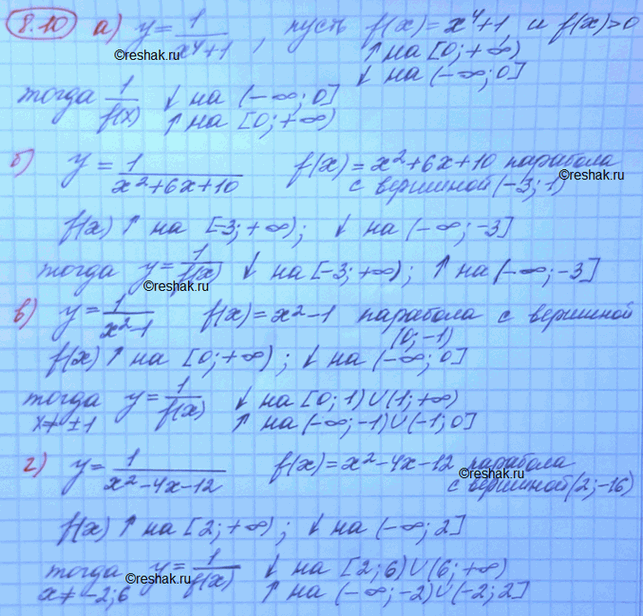 8.10 а) y = 1/(x⁴+1), пусть f(x) = x⁴+1, и f(x)>0
©reshak.ru
↑ на [0; +∞)
↓ на (-∞; 0]
тогда 1/f(x) ↓ на (-∞; 0]
↑ на [0; +∞)
©reshak.ru
б) y = 1/(x²+6x+10) f(x) = x²+6x+10 парабола
с вершиной (-3; 1)
©reshak.ru
f(x) ↑ на [-3; +∞); ↓ на (-∞; -3]
тогда y = 1/f(x) ↓ на [-3; +∞); ↑ на (-∞; -3]
©reshak.ru
в) y = 1/(x²-1) f(x) = x²-1 парабола с вершиной
(0; -1)
f(x) ↑ на [0; +∞); ↓ на (-∞; 0]
тогда y = 1/f(x) ↓ на [0; 1)∪(1; +∞)
x≠ ±1 ↑ на (-∞; -1)∪(-1; 0]
г) y = 1/(x²-4x-12) f(x) = x²-4x-12 парабола
©reshak.ru
с вершиной (2; -16)
f(x) ↑ на [2; +∞); ↓ на (-∞; 2]
тогда y = 1/f(x) ↓ на [2; 6)∪(6; +∞)
x≠ -2; 6 ↑ на (-∞; -2)∪(-2; 2]
©reshak.ru